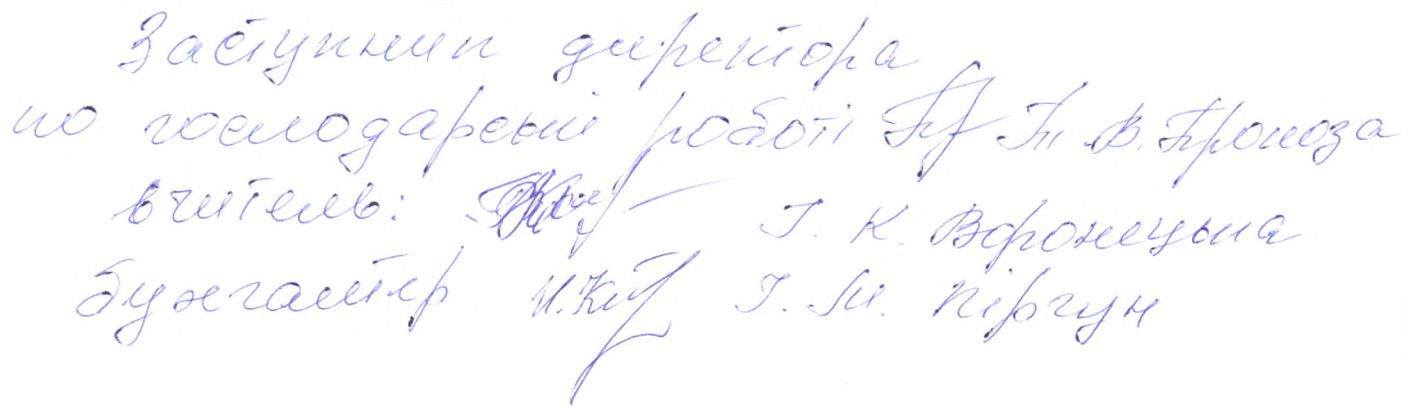 Заступник директора
по господарській роботі Т. В. Прокоза
вчитель: І. К. Воронецька
бухгалтер І. М. Піргун